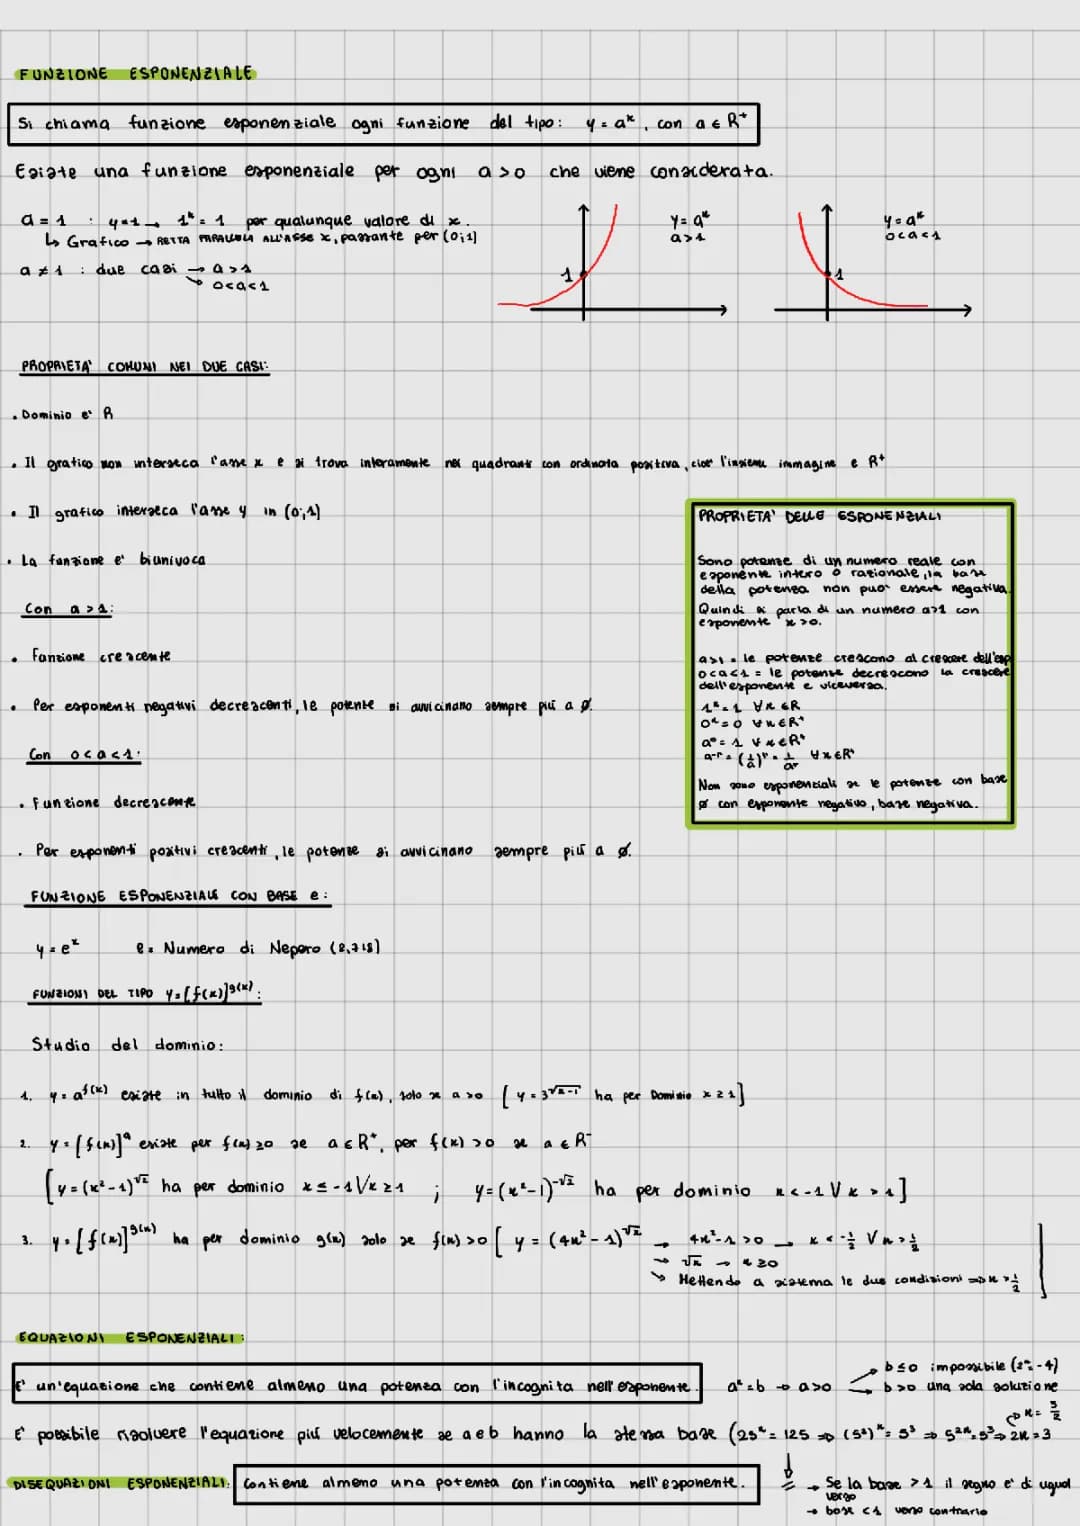 FUNZIONE ESPONENZIALE
Si chiama funzione esponenziale ogni funzione del tipo: y = aˣ, con a ∈ R⁺
Esiste una funzione esponenziale per ogni a > 0 che viene considerata.
a = 1 : y = 1 → 1ˣ = 1 per qualunque valore di x.
↳ Grafico → RETTA PARALLELA ALL'ASSE x, passante per (0;1)
a ≠ 1 : due casi → a > 1
→ 0 < a < 1
1
y = aˣ
a > 1
1
y = aˣ
0 < a < 1
PROPRIETA' COMUNI NEI DUE CASI:
• Dominio e' R
• Il grafico non interseca l'asse x e si trova interamente nei quadranti con ordinata positiva, cioe' l'insieme immagine e R⁺
• Il grafico interseca l'asse y in (0;1)
• La funzione e' biunivoca
Con a > 1:
• Funzione crescente
• Per esponenti negativi decrescenti, le potenze si avvicinano sempre più a 0.
Con 0 < a < 1:
• Funzione decrescente
• Per esponenti positivi crescenti, le potenze si avvicinano sempre più a 0.
PROPRIETA' DELLE ESPONENZIALI
Sono potenze di un numero reale con
esponente intero o razionale, la base
della potenza non puo' essere negativa.
Quindi si parla di un numero a>1 con
esponente x > 0.
a>1 = le potenze crescono al crescere dell'esp
0<a<1 = le potenze decrescono la crescere
dell'esponente e viceversa.
1ˣ = 1 ∀x ∈ R
0ˣ = 0 ∀x ∈ R⁺
a⁰ = 1 ∀x ∈ R⁺
a⁻ʳ = (1/a)ʳ = 1/aʳ ∀x ∈ R⁺
Non sono esponenziali se le potenze con base
0 con esponente negativo, base negativa.
FUNZIONE ESPONENZIALE CON BASE e:
y = eˣ e = Numero di Nepero (2,718)
FUNZIONI DEL TIPO y = [f(x)]^g(x):
Studio del dominio:
1. y = a^f(x) esiste in tutto il dominio di f(x), solo se a > 0 [y = 3^√(x-1) ha per Dominio x ≥ 1]
2. y = [f(x)]ᵃ esiste per f(x) ≥ 0 se a ∈ R⁺, per f(x) > 0 se a ∈ R⁻
[y = (x² - 1)^√2 ha per dominio x ≤ -1 ∨ x ≥ 1 ; y = (x² - 1)^-√2 ha per dominio x < -1 ∨ x > 1]
3. y = [f(x)]^g(x) ha per dominio g(x) solo se f(x) > 0 [y = (4x² - 1)^√x → 4x² - 1 > 0 → x < -1/2 ∨ x > 1/2
→ √x → x ≥ 0
→ Mettendo a sistema le due condizioni ⇒ x > 1/2]
EQUAZIONI ESPONENZIALI:
E' un'equazione che contiene almeno una potenza con l'incognita nell'esponente.
aˣ = b → a > 0
→ b ≤ 0 impossibile (2ˣ = -4)
→ b > 0 una sola soluzione
E' possibile risolvere l'equazione più velocemente se a e b hanno la stessa base (25ˣ = 125 ⇒ (5²)ˣ = 5³ ⇒ 5²ˣ = 5³ ⇒ 2x = 3
↪ x = 3/2
DISEQUAZIONI ESPONENZIALI: Contiene almeno una potenza con l'incognita nell'esponente.
→ Se la base > 1 il segno e' di ugual
verso
→ base < 1 verso contrario